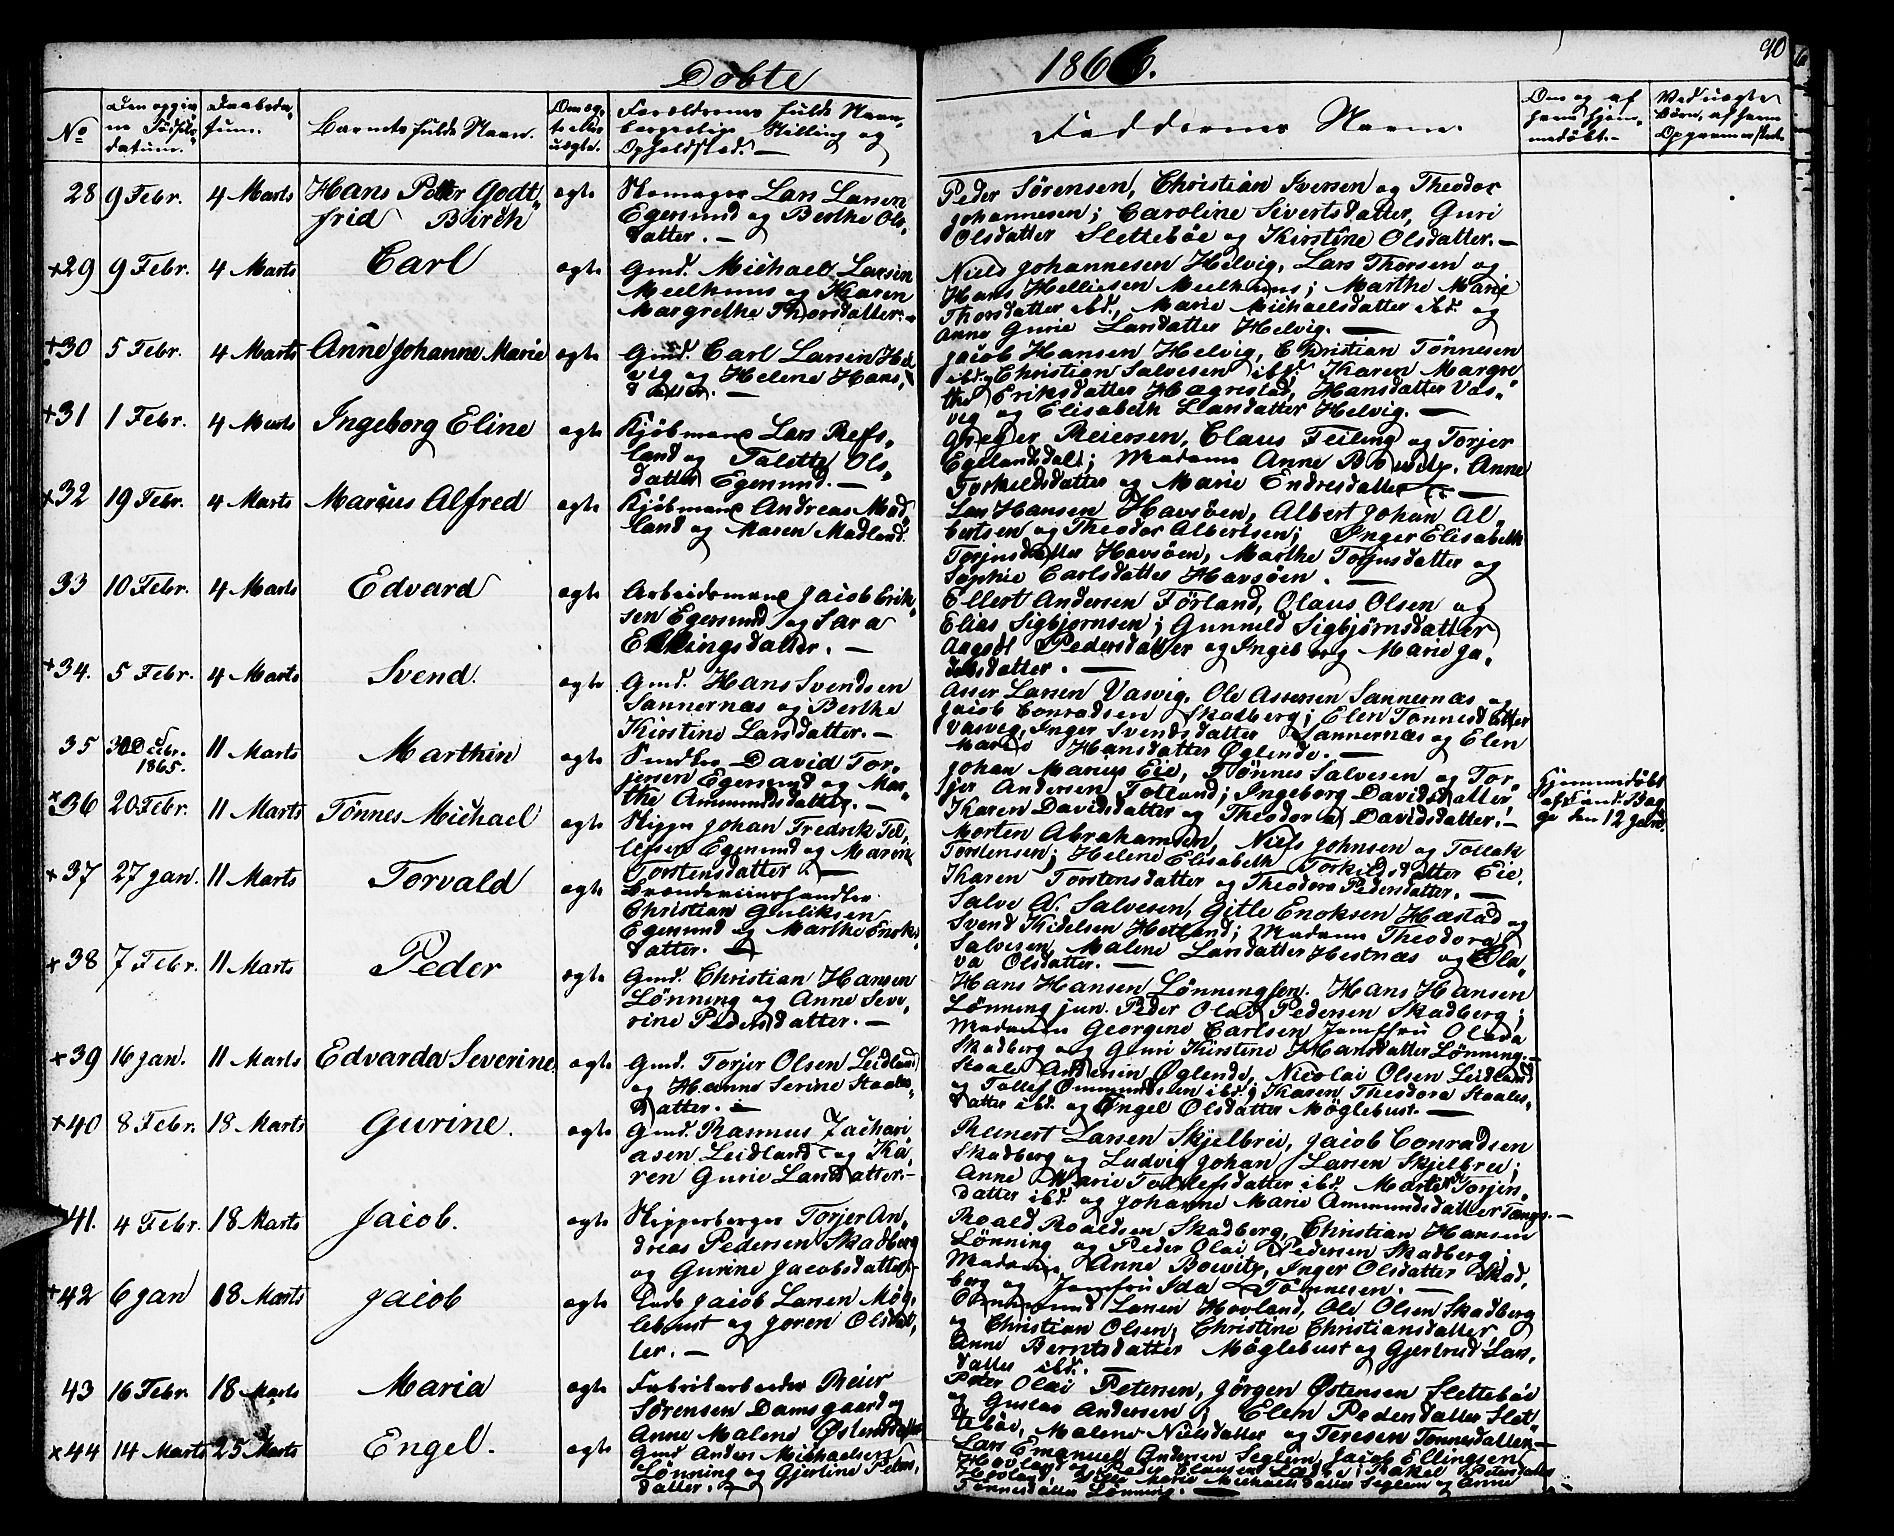 Døbte 1866.
90
No
Den opgivne Fødselsdatum.
Daabsdatum.
Barnets fulde Navn.
Om ægte eller uægte.
Forældrenes fulde Navn, borgerlige Stilling og Opholdssted.
Faddernes Navne.
Om og af hvem hjemmedøbt.
Ved uægte Børn, af hvem
28 9 Febr. 4 Marts Hans Peter Godtfrid Birch ægte
Skomager Lars Larsen
Egersund og Berthe Ols,
datter.
Peder Sørensen, Christian Iversen og Theodor
Johannesen; Caroline Sivertsdatter, Guri
Olsdatter Slettebøe og Kirstine Olsdatter.
+29 9 Febr. 4 Marts Carl ægte
Gmd. Michael Larsen
Meelhuus og Karen
Margrethe Thorsdatter.
Niels Johannesen Helvig, Lars Thorsen og
Hans Helliesen Meelhuus; Marthe Marie
Thorsdatter ibd., Marie Michaelsdatter ibd. og
Anne Gurie Larsdatter Helvig.
+30 5 Febr. 4 Marts Anne Johanne Marie ægte
Gmd. Carl Larsen Hel
vig og Helene Hans,
datter.
Jacob Hansen Helvig, Christian Tønnesen
ibd. og Christian Salvesen ibd. Karen Margre
the Eriksdatter Hægrestad, Hansdatter Vas,
vig og Elisabeth Larsdatter Helvig.
+31 1 Febr. 4 Marts Ingeborg Eline ægte
Kjøbmand Lars Refs,
land og Talette Ols,
datter Egersund.
Greger Reiersen, Claus Feiling og Torjer
Egelandsdal; Madame Anne Bowitz, Anne
Torkildsdatter og Marie Endresdatter
+32 19 Febr. 4 Marts Marius Alfred ægte
Kjøbmand Andreas Mad,
land og Maren Madland.
Lars Hansen Havsøen, Albert Johan Al,
bertsen og Theodor Albertsen; Inger Elisabeth
Torjusdatter Havsøen, Marthe Torjusdatter og
Sophie Carlsdatter Havsøen.
33 10 Febr. 4 Marts Edvard ægte
Arbeidsmand Jacob Erik,
sen Egersund og Sara
Ellingsdatter.
Ellert Andersen Førland, Olaus Olsen og
Elias Sigbjørnsen; Gunneld Sigbjørnsdatter
Aagsøt Pedersdatter og Ingeborg Marie Ja,
datter.
+34. 5 Febr. 4 Marts Svend. ægte
Gmd. Hans Svendsen
Sannernæs og Berthe
Kirstine Larsdatter.
Asser Larsen Vasvig, Ole Assersen Sannernæs og
Jacob Conradsen Skadberg; Elen Tønnesdatter
Vasvig, Inger Svendsdatter Sannernæs og Elen
Marie Hansdatter Øglende.
35 30 Decbr. 1865. 11 Marts Marthin ægte
Snedker David Tor,
jersen Egersund og Mar,
the Ammundsdatter.
Johan Marius Eie, Tønnes Salvesen og Tor,
jer Andersen Totland; Ingeborg Davidsdatter,
Karen Davidsdatter og Theodora Davidsdatter.
Hjemmedøbt
den 12 Janr.
+36 20 Febr. 11 Marts Tønnes Michael ægte
Skipper Johan Fredrik Tol,
lefsen Egersund og Maren
Torstensdatter.
Morten Abrahamsen, Niels Johnsen og Tollak
Torstensen; Helene Elisabeth Torkildsdatter Eie,
Karen Torstensdatter og Theodora Pedersdatter.
+37 27 Jan. 11 Marts Torvald ægte
Brændeviinshandler
Christian Gulliksen
Egersund og Marthe Enoks,
datter.
Salve A. Salvesen, Gitle Enoksen Hæstad og
Svend Kidelsen Hetland; Madame Theodora
Salvesen, Malene Larsdatter Hestnæs og Ola,
va Olsdatter.
+38 7 Febr. 11 Marts Peder ægte
Gmd. Christian Hansen
Lønning og Anne Seve,
rine Pedersdatter.
Hans Hansen Lønning sen. Hans Hansen
Lønning jun. Peder Olai Pedersen Skadberg;
Madame Georgine Carlsen Jomfru Oleda
Skadberg og Guri Kirstine Hansdatter Lønning.
+39 16 Jan. 11 Marts Edvarda Severine ægte
Gmd. Torjer Olsen Leidland
og Hanne Serine Staales,
datter.
Staale Andersen Øglende, Nicolai Olsen Leidland
og Tollef Ommundsen ibd.; Karen Theodora Staales,
datter ibd. og Engel Olsdatter Møglebust.
+40 8 Febr. 18 Marts Gurine. ægte
Gmd. Rasmus Zachari
asen Leidland og Ka,
ren Gurie Larsdatter.
Reinert Larsen Skjelbrei, Jacob Conradsen
Skadberg og Ludvig Johan Larsen Skjelbrei;
Anne Marie Tollefsdatter ibd. Marte Torjers,
datter ibd. og Johanne Marie Ammundsdatter Tængs.
+41. 4 Febr. 18 Marts Jacob. ægte
Skipperborger Torjer An,
dreas Pedersen Skadberg
og Gurine Jacobsdatter.
Roald Roaldsen Skadberg, Christian Hansen
Lønning og Peder Olai Pedersen Skadberg;
Madame Anne Bowitz, Inger Olsdatter Skad,
berg og Jomfru Ida Tønnesen.
+42 6 Jan 18 Marts Jacob ægte
Jacob Larsen Møg,
lebust og Joren Olsdat,
ter.
Ommund Larsen Hovland, Ole Olsen Skadberg
og Christian Olsen; Christine Christiansdatter,
Anne Berntsdatter Møglebust og Gjertrud Lars,
datter ibd.
43 16 Febr. 18 Marts Maria ægte
Fabrikarbeider Reier
Sørensen Damsgaard og
Anne Malene Østensdatter
Peter Olai Petersen, Jørgen Østensen Slettebøe
og Gustav Andersen; Elen Pedersdatter Slet,
tebøe, Malene Nielsdatter og Teresen Tønnesdatter.
+44 14 Marts 25 Marts Engel. ægte
Gmd Anders Michaelsen
Lønning og Gjertine Peters,
datter.
Lars Emanuel Andersen Seglem, Jacob Ellingsen
Hovland, Peder Clausen Rakel Petersdatter
Hovland, Marie Michaelsdatter Seglem og Anne
Tønnesdatter Lønning.